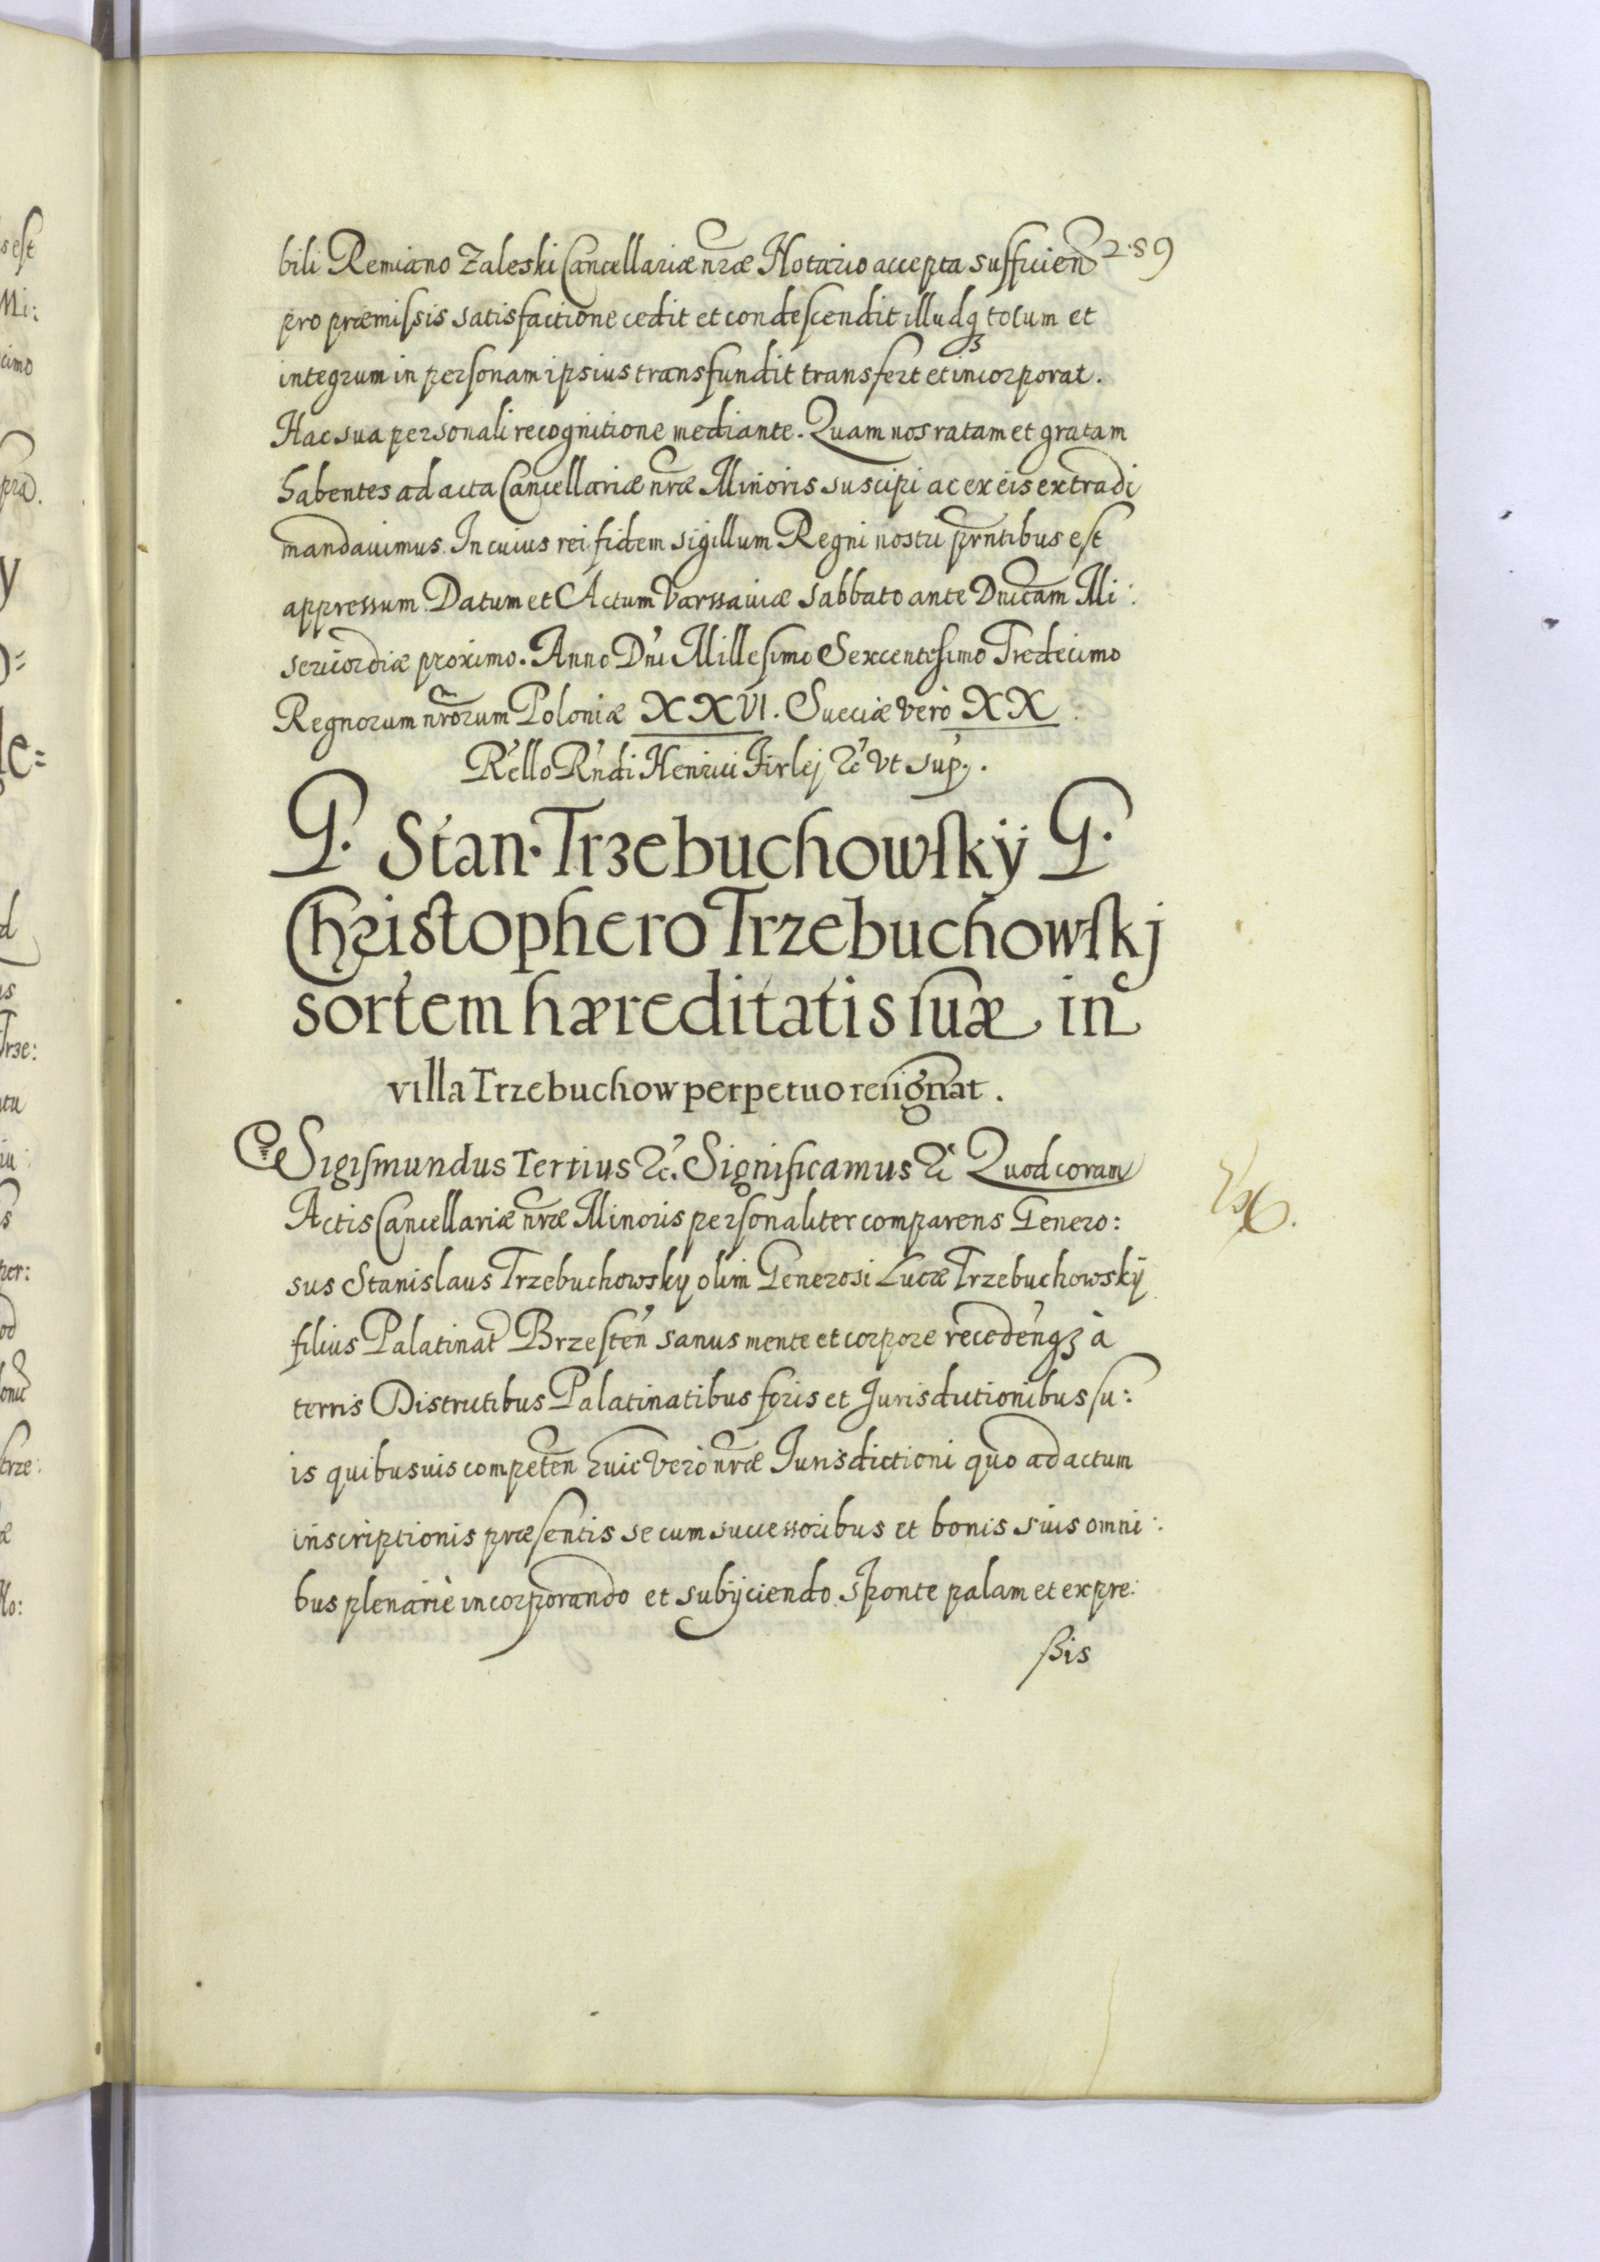 289
bili Remiano Zaleski Cancellariæ nræ Notario accepta sufficien
pro præmissis satisfactione cedit et condescendit illudq3 totum et
integrum in personam ipsius transfundit transfert et incorporat.
Hac sua personali recognitione mediante. Quam nos ratam et gratam
habentes ad acta Cancellariæ nræ Minoris suscipi ac ex eis extradi
mandauimus. In cuius rei fidem sigillum Regni nostri prntibus est
appressum. Datum et Actum Varssauiæ Sabbato ante Dnicam Mi:
sericordiæ proximo. Anno Dni Millesimo Sexcentesimo Tredecimo
Regnorum nrorum Poloniæ XXVI. Sueciæ vero XX
R'ello R'ndi Henrici Firlej &c vt sup.
G. Stan. Trzebuchowsky G.
Christophero Trzebuchowskj
sortem hæreditatis suæ in
villa Trzebuchow perpetuo resignat.
Sigismundus Tertius &c. Significamus &c Quod coram
Actis Cancellariæ nræ Minoris personaliter comparens Genero:
sus Stanislaus Trzebuchowsky olim Generosi Lucæ Trzebuchowskÿ
filius Palatinat Brzesten sanus mente et corpore recedenq3 à
terris Districtibus Palatinatibus foris et Jurisdictionibus su:
is quibusuis competen huic verò nræ Jurisdictioni quo ad actum
inscriptionis præsentis se cum successoribus et bonis suis omni:
bus plenariè incorporando et subÿciendo. Sponte palam et expre:
ßis